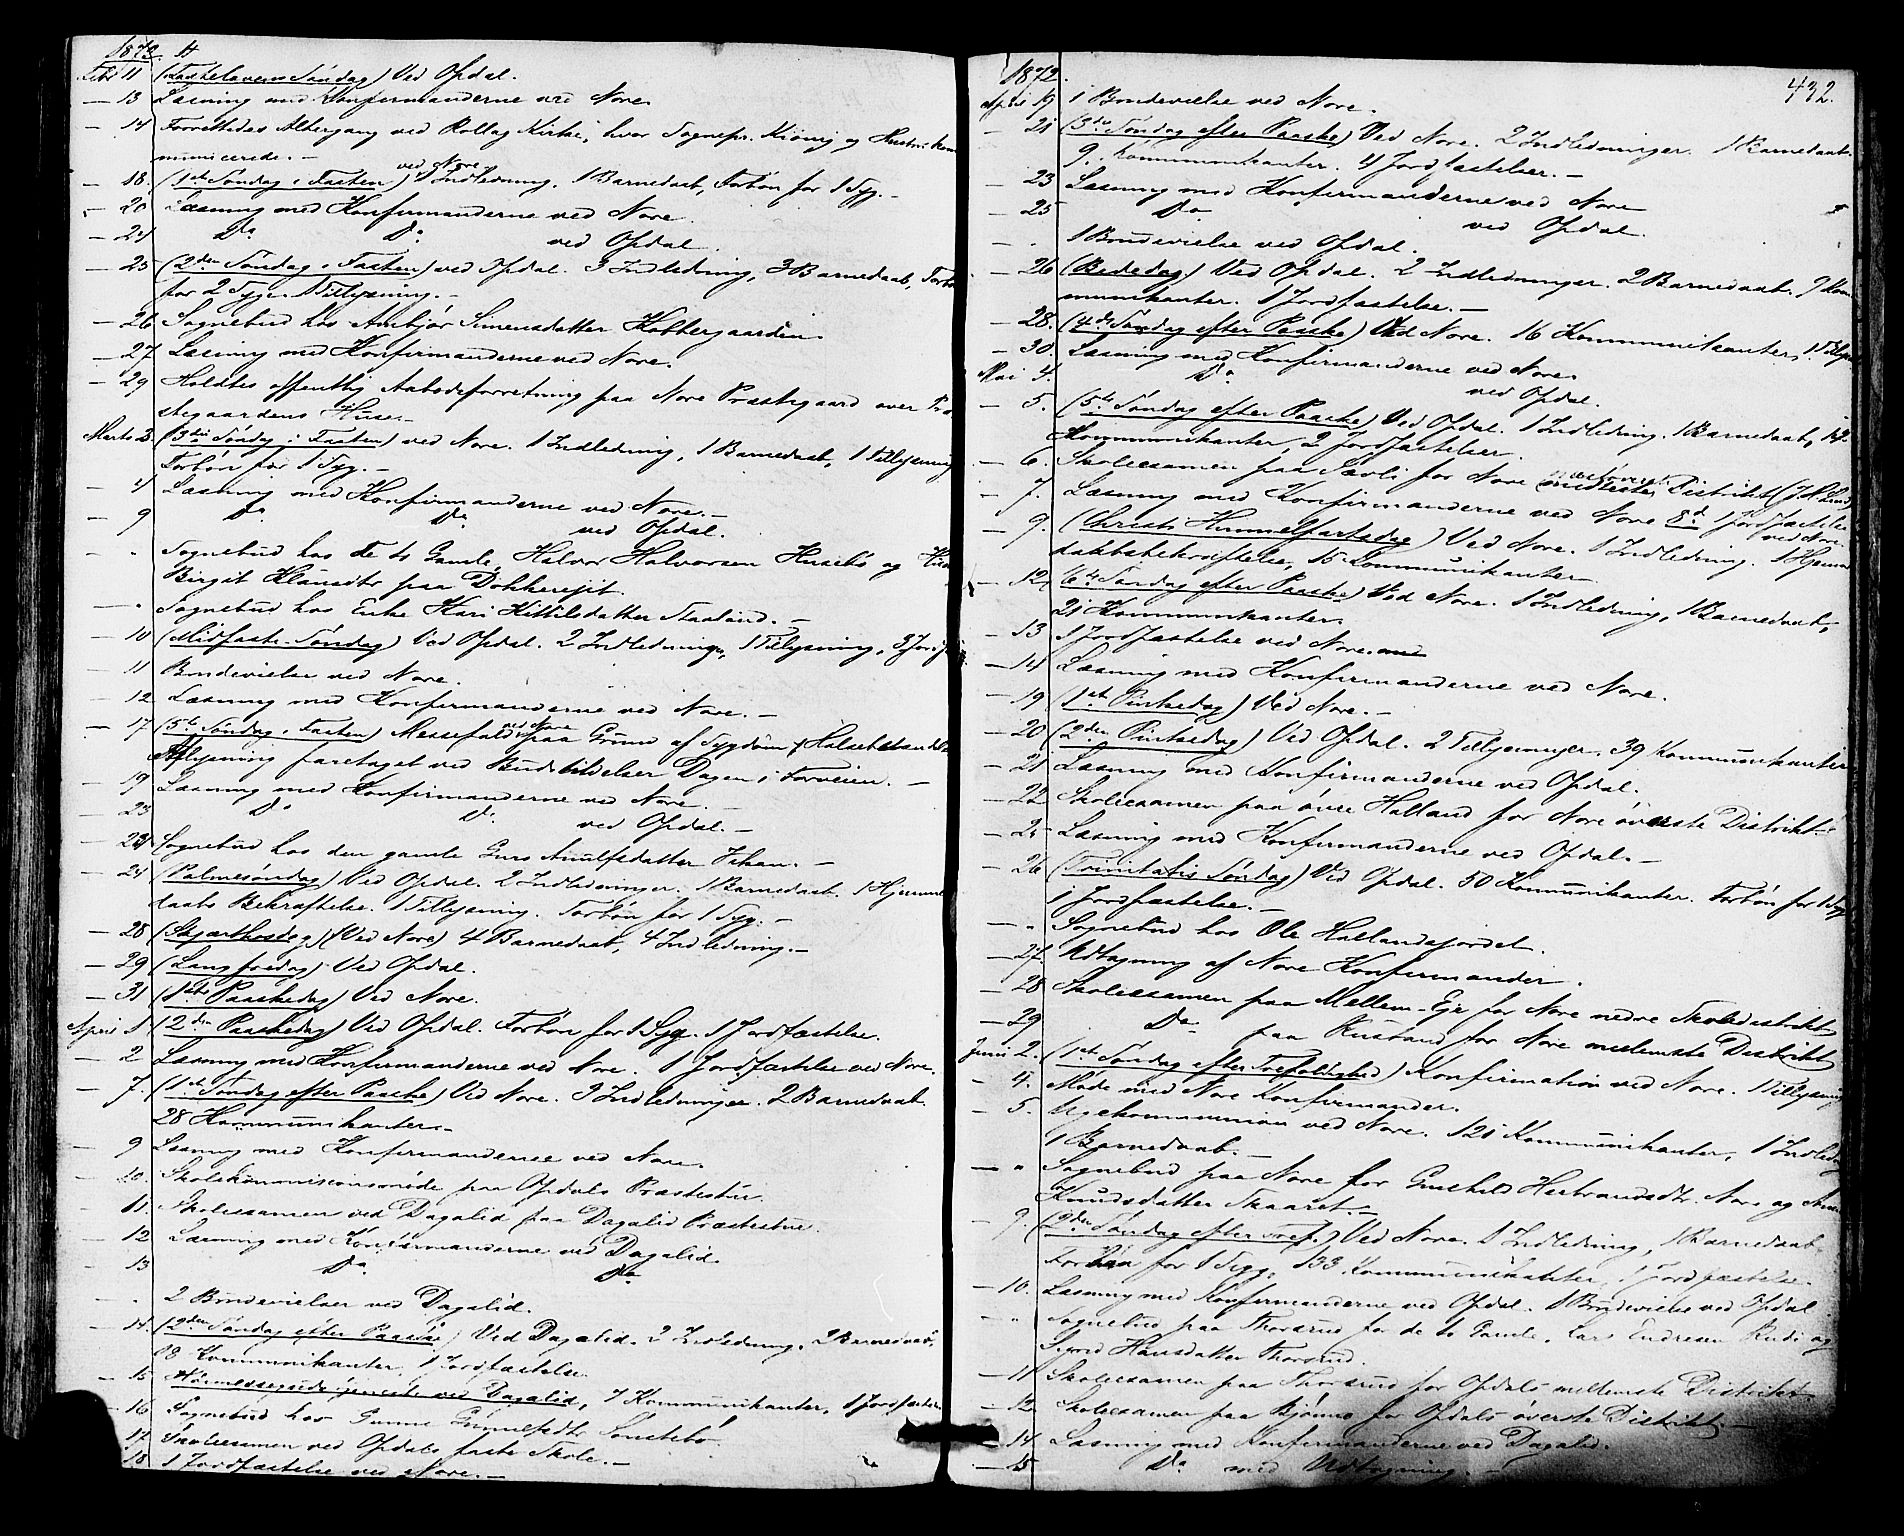 1872.
Febr 11 (Fastelavens Søndag) Ved Opdal.
— 13 Læsning med Konfirmanderne ved Nore.
— 14 Forrettedes Altergang ved Rollag Kirke, hvor Sognepr. Kiönig og Hustru kom
municerede. —
— 18. (1ste Søndag i Fasten) ved Nore 1 Indledning. 1 Barnedaab, Forbøn for 1 Syg. —
— 20 Læsning med Konfirmanderne ved Nore.
— 24 Do Do ved Opdal.
— 25 (2den Søndag i Fasten) ved Opdal. 3 Indledning, 3 Barnedaab, Forbøn
for 2 Syge. 1 Tillysning. —
— 26 Sognebud hos Anbjør Simensdatter Kobbergaarden
— 27 Læsning med Konfirmanderne ved Nore.
— 29 Holdtes offentlig Aabodsforretning paa Nore Præstegaard over Præ
stegaardens Huse. —
Marts 3. (3die Søndag i Fasten) ved Nore. 1 Indledning, 1 Barnedaab, 1 Tillysning
Forbøn for 1 Syg. —
— 4 Læsning med Konfirmanderne ved Nore. —
— 9 Do Do ved Opdal.
— " Sognebud hos de to Gamle, Halvor Halvorsen Husebö og
Birgit Klausdtr paa Dökkerejit.
— " Sognebud hos Enke Kari Kittilsdatter Staaland. —
— 10 (Midfaste-Søndag) Ved Opdal. 2 Indledninger, 1 Tillysning, 3 Jordf.
— 11 Brudevielse ved Nore.
— 12 Læsning med Konfirmanderne ved Nore. —
— 17 (5te Søndag i Fasten) Messefald ved Nore paa Grund af Sygdom
Aflysning foretaget ved Budstikkelser Dagen i Forveien. —
— 19 Læsning med Konfirmanderne ved Nore. —
— 23 Do Do ved Opdal. —
— Sognebud hos den gamle Guro Arnulfsdatter
— 24 (Palmesøndag) Ved Opdal. 2 Indledninger. 1 Barnedaab. 1 Hjemme
daabs Bekræftelse. 1 Tillysning. Forbøn for 1 Syg. —
— 28 (Skjærthorsdag) (Ved Nore) 4 Barnedaab, 4 Indledning. —
— 29 (Langfredag) Ved Opdal.
— 31 (1ste Paaskedag) Ved Nore.
April 1 (2den Paaskedag) Ved Opdal. Forbøn for 1 Syg. 1 Jordfæstelse.
— 2 Læsning med Konfirmanderne ved Nore. 1 Jordfæstelse ved Nore.
— 7. (1ste Søndag efter Paaske) Ved Nore. 3 Indledninger. 2 Barnedaab
28 Kommunikanter. —
— 9 Læsning med Konfirmanderne ved Nore.
— 10. Skolekommissionsmøde paa Opdals Præstestue.
— 11. Skoleexamen ved Dagalid paa Dagalid Præstestue.
— 12 Læsning med Konfirmanderne ved Dagalid.
— 13 Do Do
— " 2 Brudevielser ved Dagalid.
— 14. (2den Søndag efter Paaske) Ved Dagalid. 2 Indledning. 2 Barnedaab.
Kommunikanter, 1 Jordfæstelse
— 15 ved Dagalid, 7 Kommunikanter, 1 Jordfæstelse
— 16 Sognebud hos Gunni Gunnulfsdtr Sönstebö.
— 17. Skoleexamen ved Opdals faste Skole. —
— 18 1 Jordfæstelse ved Nore. —
432.
1872.
April 19 1 Brudevielse ved Nore.
— 21 (3die Søndag efter Paaske) Ved Nore. 2 Indledninger. 1 Barnedaab.
9. Kommunikanter. 4 Jordfæstelser. —
— 23 Læsning med Konfirmanderne ved Nore
— 25 Do ved Opdal.
— " 1 Brudevielse ved Opdal.
— 26 (Bededag) Ved Opdal. 2 Indledninger. 2 Barnedaab. 9 Kom
munikanter. 1 Jordfæstelse. —
— 28. (4de Søndag efter Paaske) Ved Nore. 16 Kommunikanter, 1 Tillysn
— 30. Læsning med Konfirmanderne ved Nore.
Mai 4. Do ved Opdal.
— 5. (5te Søndag efter Paaske) Ved Opdal. 1 Indledning. 1 Barnedaab, 12.
Kommunikanter, 2 Jordfæstelser.
— 6. Skoleexamen paa Sævli for Nore Distrikt
— 7. Læsning med Konfirmanderne ved Nore 8de 1 Jordfæstelse
ved Nore
— 9. (Christi Himmelfartsdag) Ved Nore. 1 Indledning. 1 Hjemme
daabsbekræftelse, 15 Kommunikanter
— 12 (6te Søndag efter Paaske) Ved Nore. 1 Indledning, 1 Barnedaab,
21 Kommunikanter
— 13 1 Jordfæstelse ved Nore.
— 14 Læsning med Konfirmanderne ved Nore.
— 19 (1ste Pintsedag) Ved Nore. —
— 20 (2den Pintsedag) Ved Opdal. 2 Tillysninger. 39 Kommunikanter
— 21 Læsning med Konfirmanderne ved Opdal.
— 22 Skoleexamen paa övre Halland for Nore överste Distrikt
— 25 Læsning med Konfirmanderne ved Opdal. —
— 26 (Trinitatis Søndag) Ved Opdal. 50 Kommunikanter. Forbøn for 1 Syg
1 Jordfæstelse. —
— " Sognebud hos Ole Hallandsjordet.
— 27. Udtagning af Nore Konfirmander.
— 28 Skoleexamen paa Mellem-Eje for Nore nedre Skoledistrikt
— 29 Do paa Rustand for Nore mellemste Distrikt
Juni 2. (1ste Søndag efter Trefoldighed) Konfirmation ved Nore. 1 Tillysning
— 4. Møde med Nore Konfirmander.
— 5. Ugekommunion ved Nore. 121 Kommunikanter, 1 Indledn
1 Barnedaab. —
— " Sognebud paa Nore for Gunhild Herbrandsdtr. Nore og
Knudsdatter Skaaret. —
— 9. (2den Søndag efter Tref.) Ved Nore. 1 Indledning, 1 Barnedaab.
Forbøn for 1 Syg, 133 Kommunikanter, 1 Jordfæstelse.
— 10. Læsning med Konfirmanderne ved Opdal. 1 Brudevielse ved Opdal
— " Sognebud paa Thorsrud for de to Gamle, Lars Endresen Rudi og
Sigrid Hansdatter Thorsrud.
— 11 Skoleexamen paa Thorsrud for Opdals mellemste Distrikt
— 12. Skoleexamen paa Bjönnö for Opdals överste Distrikt. —
— 14 Læsning med Konfirmanderne ved Dagalid.
— 15 Do med Udtagning. —